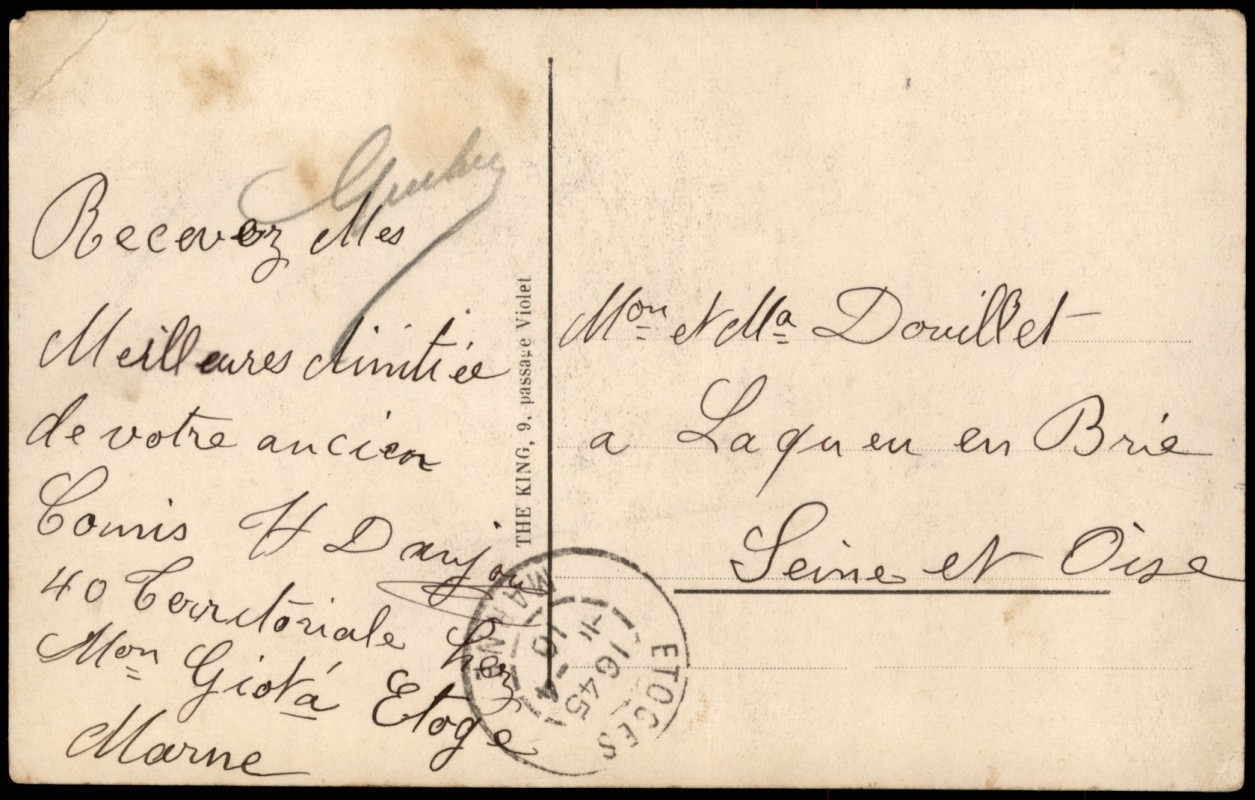 Recevez Mes
Meilleures Amitiée
de votre ancien
Comis H Danjou
40 Territoriale her
Mon Giot á Etoge
Marne
THE KING, 9, passage Violet
Mon et Ma Douillet
a Laqueu en Brie
Seine et Oise
ETOGES
MARNE
16 45